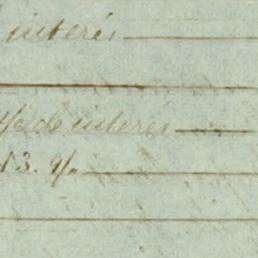 interés
% de interés
13. %